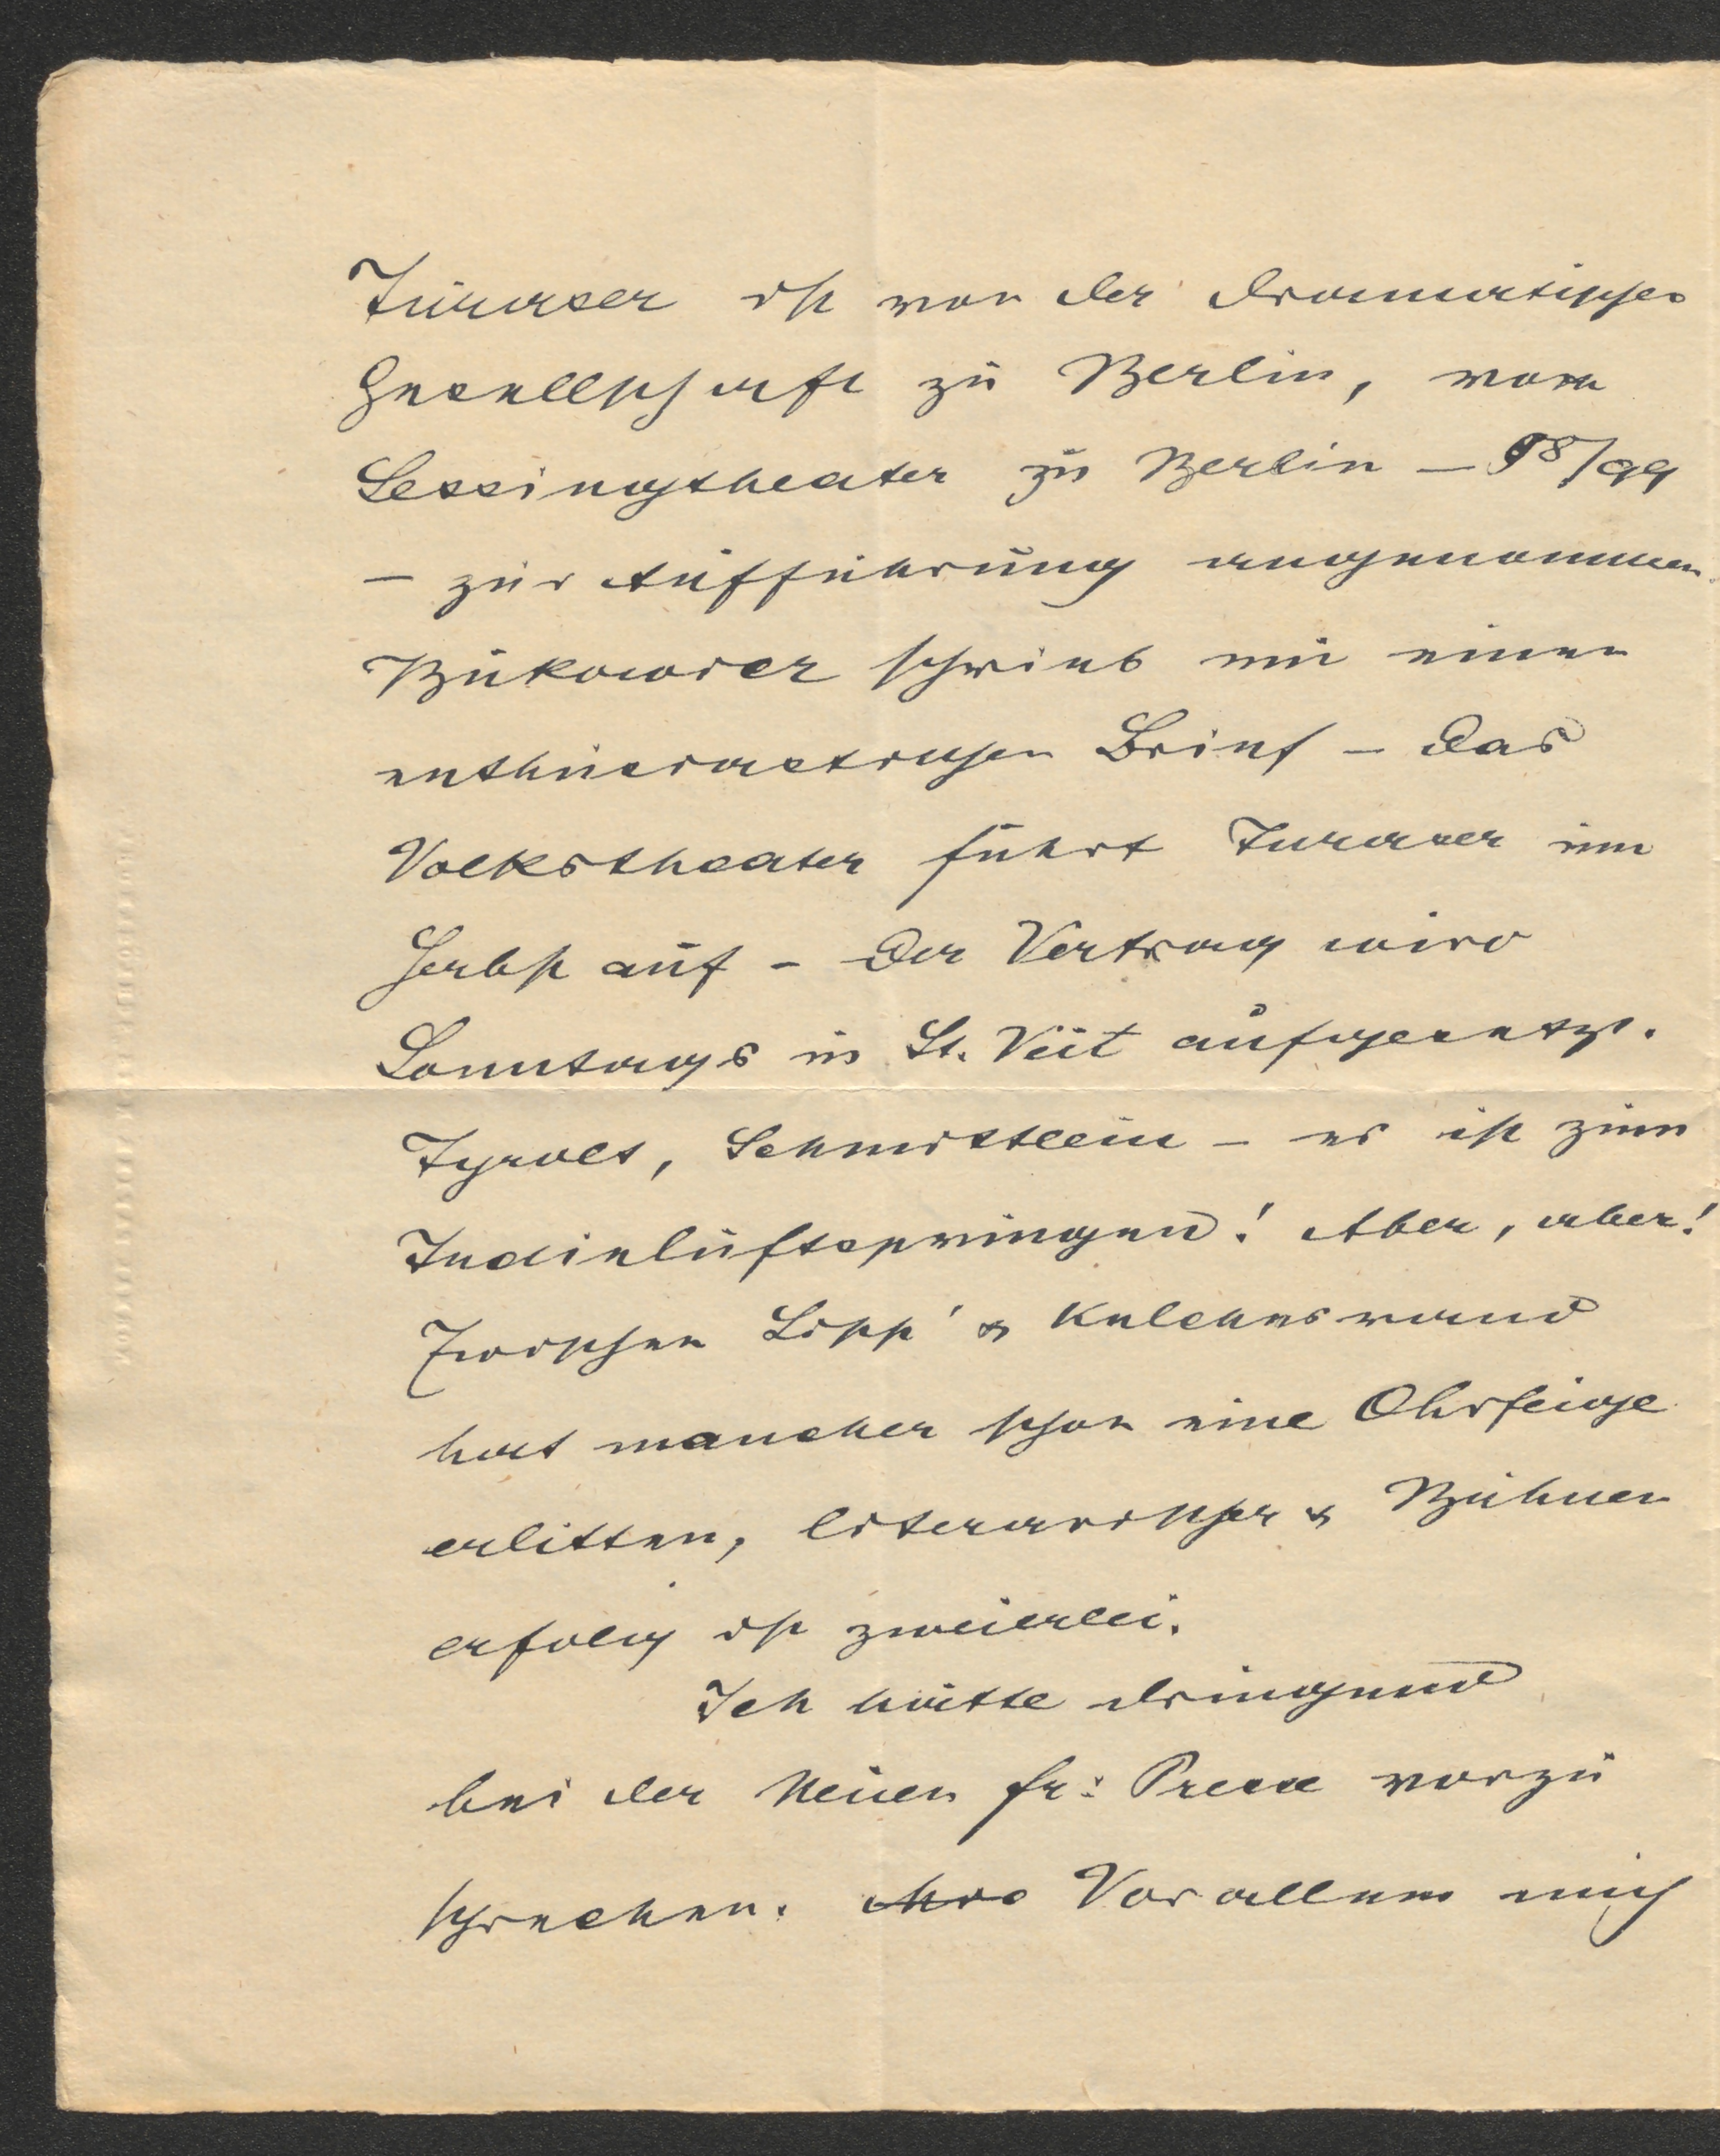 Turaser ist von der dramatischen
Gesellschaft zu Berlin, vom
Lessingtheater zu Berlin – 98/99
– zur Aufführung angenommen.
Bukowics schrieb mir einen
enthusiastischen Brief – das
Volkstheater führt Turaser im
Herbst auf – der Vertrag wird
Sonntags in St. Veit aufgesetzt.
Tyrolt, Schmittlein – es ist zum
Indieluftspringen! Aber, aber!
Zwischen Lipp' & Kelchesrand
hat mancher schon eine Ohrfeige
erlitten, literarischer & Bühnen
erfolg ist zweierlei.
Ich hätte dringend
bei der Neuen fr: Presse vorzu
sprechen. Vor allem mich